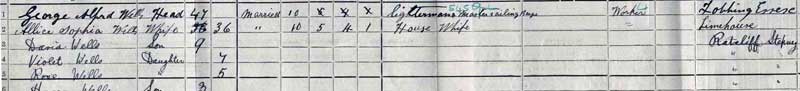 1 George Alfred Wells Head 47 Married 10 x x x Lighterman Master sailing barge Worker Fobbing Essex
2 Allice Sophia Wells Whife 36 " 10 5 4 1 House Whife " Limehouse
3 David Wells Son 9 Ratcliff Stepney
4 Violet Wells Daughter 7 " "
5 Rose Wells " 5 " "
6 Wells Son 3